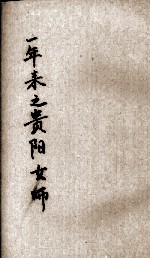 一年来之贵阳女师